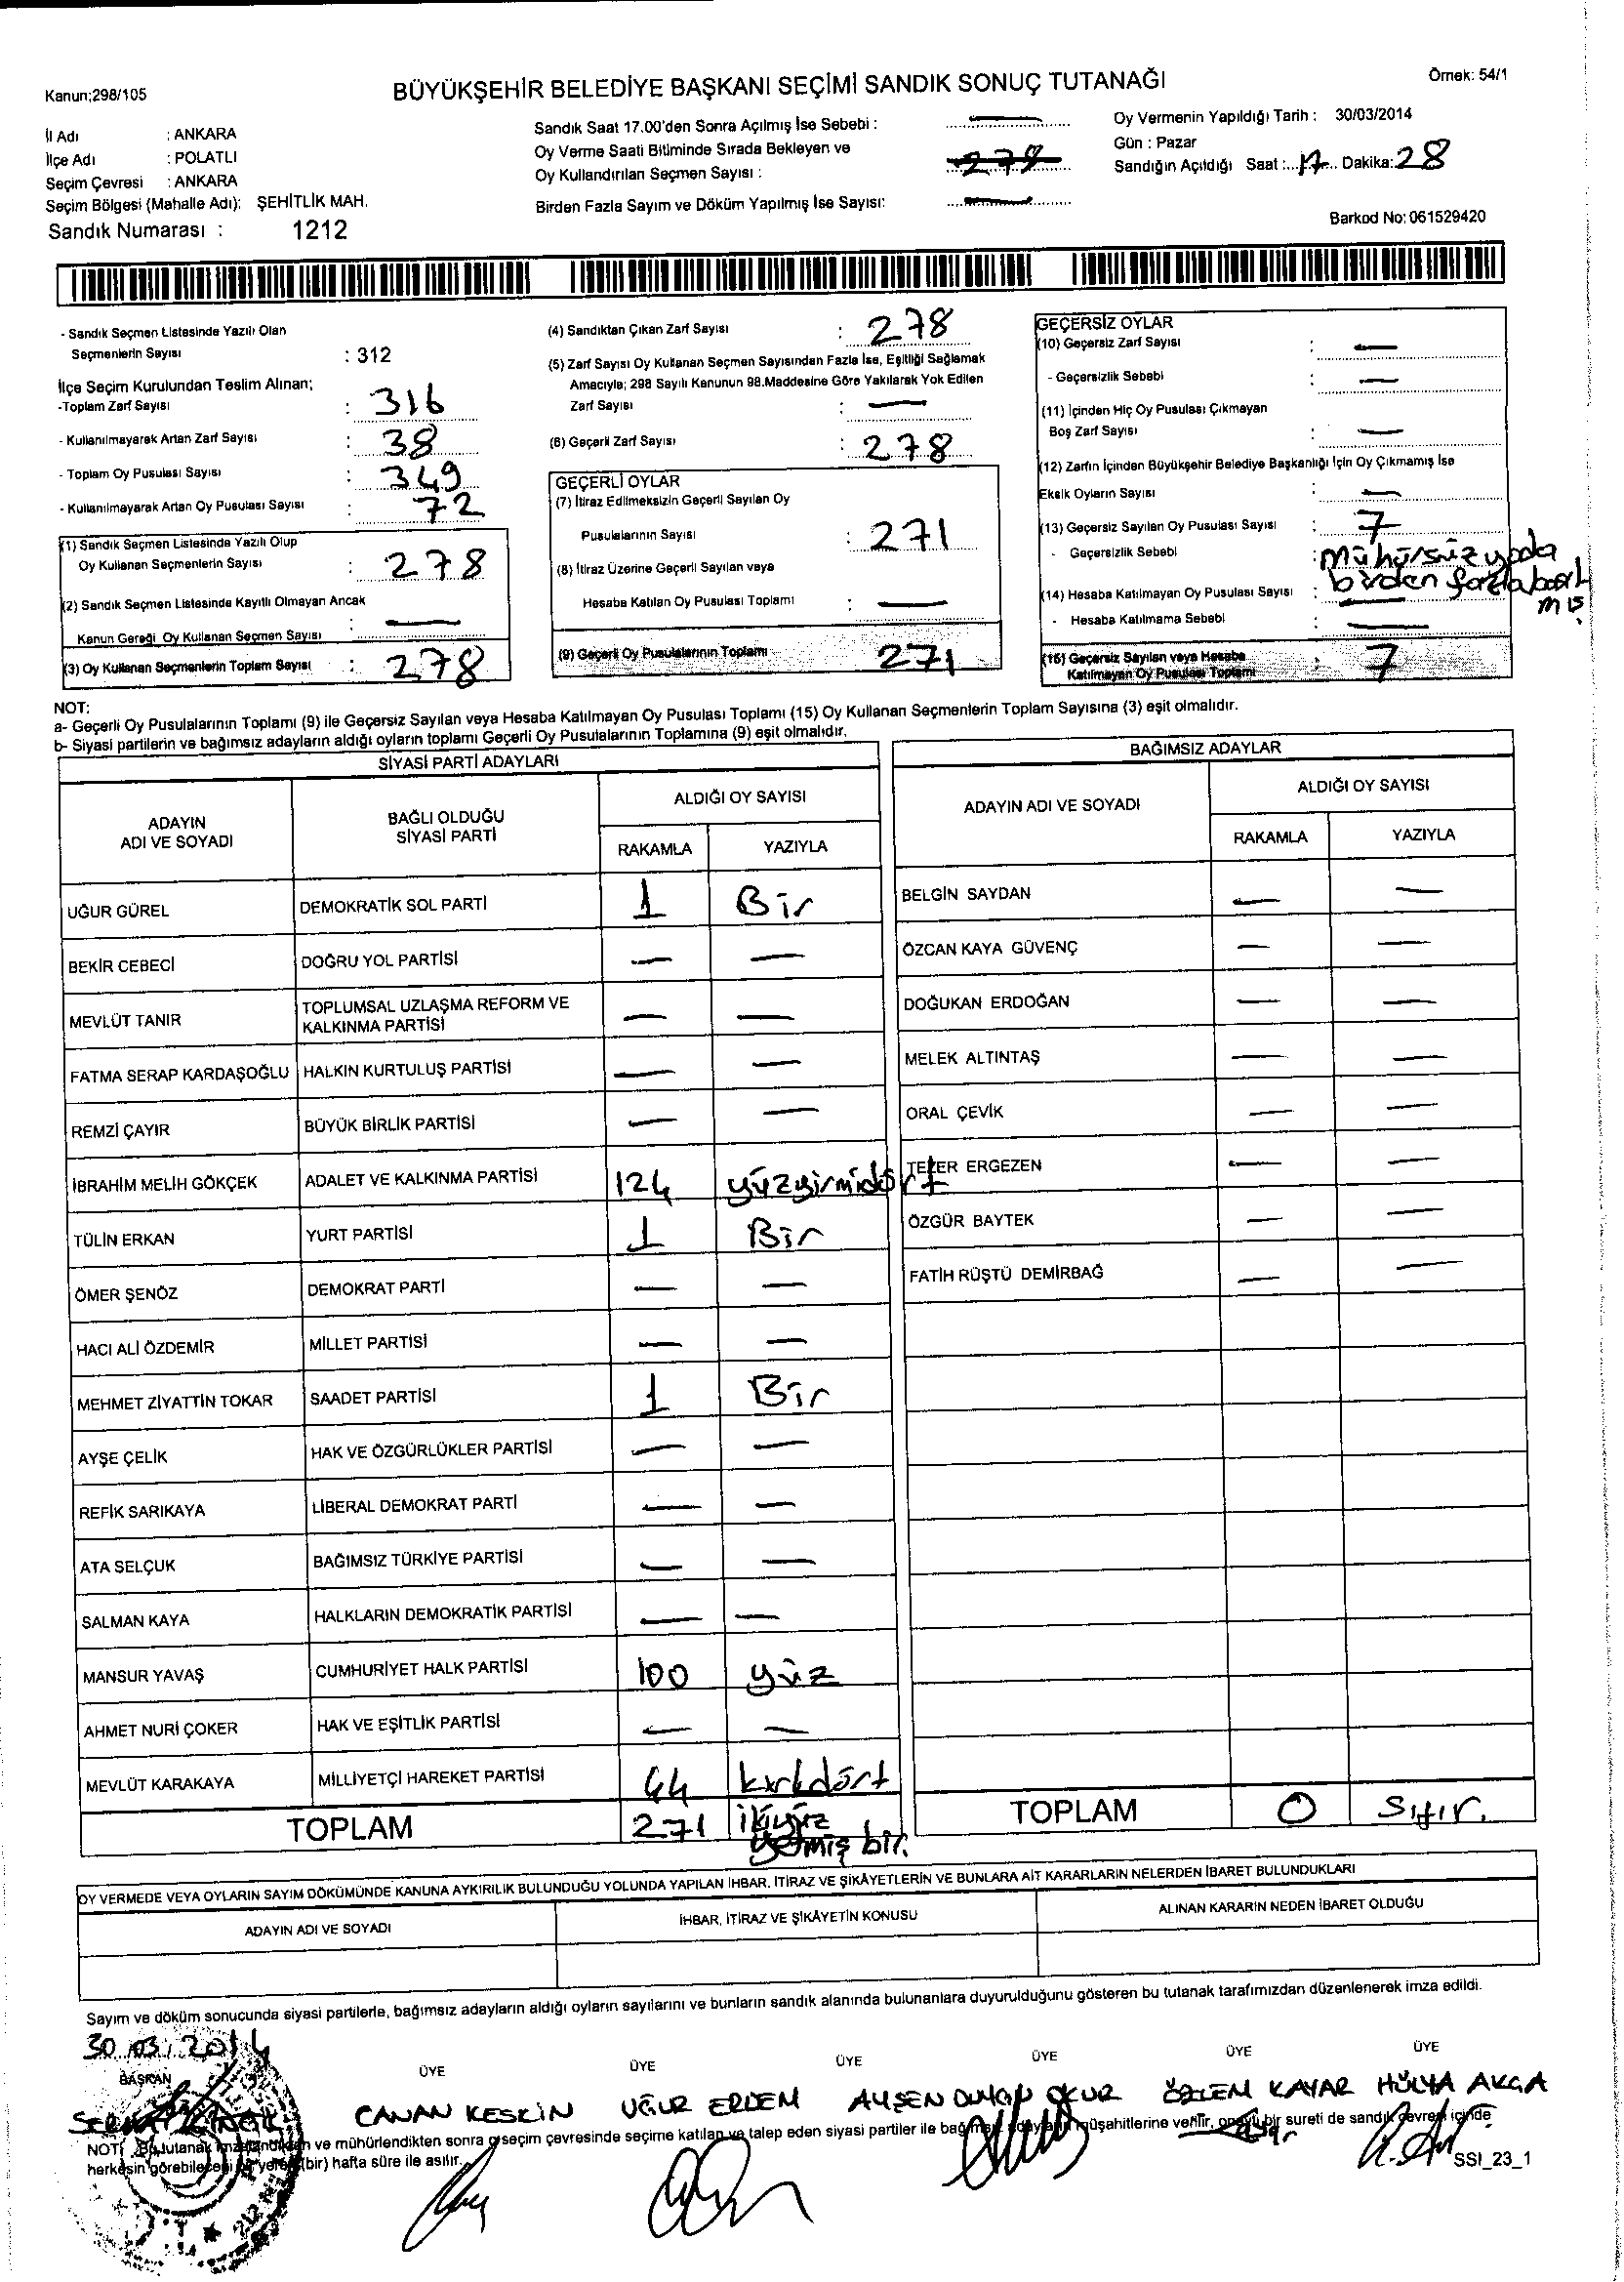 Kanun;298/105
BÜYÜKŞEHİR BELEDİYE BAŞKANI SEÇİMİ SANDIK SONUÇ TUTANAĞI
Örnek: 54/1
İl Adı : ANKARA
İlçe Adı : POLATLI
Seçim Çevresi : ANKARA
Seçim Bölgesi (Mahalle Adı): ŞEHİTLİK MAH.
Sandık Numarası : 1212
Sandık Saat 17.00'den Sonra Açılmış İse Sebebi : —
Oy Verme Saati Bitiminde Sırada Bekleyen ve
Oy Kullandırılan Seçmen Sayısı : 278
Birden Fazla Sayım ve Döküm Yapılmış İse Sayısı: —
Oy Vermenin Yapıldığı Tarih : 30/03/2014
Gün : Pazar
Sandığın Açıldığı Saat : 17 Dakika: 28
Barkod No: 061529420
- Sandık Seçmen Listesinde Yazılı Olan
Seçmenlerin Sayısı : 312
İlçe Seçim Kurulundan Teslim Alınan;
-Toplam Zarf Sayısı : 316
- Kullanılmayarak Artan Zarf Sayısı : 38
- Toplam Oy Pusulası Sayısı : 349
- Kullanılmayarak Artan Oy Pusulası Sayısı : 72
(1) Sandık Seçmen Listesinde Yazılı Olup
Oy Kullanan Seçmenlerin Sayısı : 278
(2) Sandık Seçmen Listesinde Kayıtlı Olmayan Ancak
Kanun Gereği Oy Kullanan Seçmen Sayısı : —
(3) Oy Kullanan Seçmenlerin Toplam Sayısı : 278
(4) Sandıktan Çıkan Zarf Sayısı : 278
(5) Zarf Sayısı Oy Kullanan Seçmen Sayısından Fazla İse, Eşitliği Sağlamak
Amacıyla; 298 Sayılı Kanunun 98.Maddesine Göre Yakılarak Yok Edilen
Zarf Sayısı : —
(6) Geçerli Zarf Sayısı : 278
GEÇERLİ OYLAR
(7) İtiraz Edilmeksizin Geçerli Sayılan Oy
Pusulalarının Sayısı : 271
(8) İtiraz Üzerine Geçerli Sayılan veya
Hesaba Katılan Oy Pusulası Toplamı : —
(9) Geçerli Oy Pusulalarının Toplamı 271
GEÇERSİZ OYLAR
(10) Geçersiz Zarf Sayısı : —
- Geçersizlik Sebebi : —
(11) İçinden Hiç Oy Pusulası Çıkmayan
Boş Zarf Sayısı : —
(12) Zarfın İçinden Büyükşehir Belediye Başkanlığı İçin Oy Çıkmamış İse
Eksik Oyların Sayısı : —
(13) Geçersiz Sayılan Oy Pusulası Sayısı : 7
- Geçersizlik Sebebi : Mühürsüz yada
birden fazla basıl
mış
(14) Hesaba Katılmayan Oy Pusulası Sayısı : —
- Hesaba Katılmama Sebebi : —
(15) Geçersiz Sayılan veya Hesaba
Katılmayan Oy Pusulası Toplamı : 7
NOT:
a- Geçerli Oy Pusulalarının Toplamı (9) ile Geçersiz Sayılan veya Hesaba Katılmayan Oy Pusulası Toplamı (15) Oy Kullanan Seçmenlerin Toplam Sayısına (3) eşit olmalıdır.
b- Siyasi partilerin ve bağımsız adayların aldığı oyların toplamı Geçerli Oy Pusulalarının Toplamına (9) eşit olmalıdır.
SİYASİ PARTİ ADAYLARI
ADAYIN ADI VE SOYADI
BAĞLI OLDUĞU SİYASİ PARTİ
ALDIĞI OY SAYISI
RAKAMLA YAZIYLA
UĞUR GÜREL DEMOKRATİK SOL PARTİ 1 Bir
BEKİR CEBECİ DOĞRU YOL PARTİSİ — —
MEVLÜT TANIR TOPLUMSAL UZLAŞMA REFORM VE KALKINMA PARTİSİ — —
FATMA SERAP KARDAŞOĞLU HALKIN KURTULUŞ PARTİSİ — —
REMZİ ÇAYIR BÜYÜK BİRLİK PARTİSİ — —
İBRAHİM MELİH GÖKÇEK ADALET VE KALKINMA PARTİSİ 124 yüzyirmidört
TÜLİN ERKAN YURT PARTİSİ 1 Bir
ÖMER ŞENÖZ DEMOKRAT PARTİ — —
HACI ALİ ÖZDEMİR MİLLET PARTİSİ — —
MEHMET ZİYATTİN TOKAR SAADET PARTİSİ 1 Bir
AYŞE ÇELİK HAK VE ÖZGÜRLÜKLER PARTİSİ — —
REFİK SARIKAYA LİBERAL DEMOKRAT PARTİ — —
ATA SELÇUK BAĞIMSIZ TÜRKİYE PARTİSİ — —
SALMAN KAYA HALKLARIN DEMOKRATİK PARTİSİ — —
MANSUR YAVAŞ CUMHURİYET HALK PARTİSİ 100 yüz
AHMET NURİ ÇOKER HAK VE EŞİTLİK PARTİSİ — —
MEVLÜT KARAKAYA MİLLİYETÇİ HAREKET PARTİSİ 44 kırkdört
TOPLAM 271 ikiyüz
yetmiş bir.
BAĞIMSIZ ADAYLAR
ADAYIN ADI VE SOYADI
ALDIĞI OY SAYISI
RAKAMLA YAZIYLA
BELGİN SAYDAN — —
ÖZCAN KAYA GÜVENÇ — —
DOĞUKAN ERDOĞAN — —
MELEK ALTINTAŞ — —
ORAL ÇEVİK — —
TEZER ERGEZEN — —
ÖZGÜR BAYTEK — —
FATİH RÜŞTÜ DEMİRBAĞ — —
TOPLAM 0 Sıfır.
OY VERMEDE VEYA OYLARIN SAYIM DÖKÜMÜNDE KANUNA AYKIRILIK BULUNDUĞU YOLUNDA YAPILAN İHBAR, İTİRAZ VE ŞİKÂYETLERİN VE BUNLARA AİT KARARLARIN NELERDEN İBARET BULUNDUKLARI
ADAYIN ADI VE SOYADI
İHBAR, İTİRAZ VE ŞİKÂYETİN KONUSU
ALINAN KARARIN NEDEN İBARET OLDUĞU
Sayım ve döküm sonucunda siyasi partilerle, bağımsız adayların aldığı oyların sayılarını ve bunların sandık alanında bulunanlara duyurulduğunu gösteren bu tutanak tarafımızdan düzenlenerek imza edildi.
30.03.2014
BAŞKAN ÜYE ÜYE ÜYE ÜYE ÜYE ÜYE
CANAN KESKİN UĞUR ERDEM AYŞEN OKUR ÖZLEM KAYAR HÜLYA AKÇA
NOT: Bu tutanak imzalandıktan ve mühürlendikten sonra o seçim çevresinde seçime katılan ve talep eden siyasi partiler ile bağımsız adayların müşahitlerine verilir, onaylı bir sureti de sandık çevresi içinde
herkesin görebileceği bir yere (bir) hafta süre ile asılır.
SSI_23_1